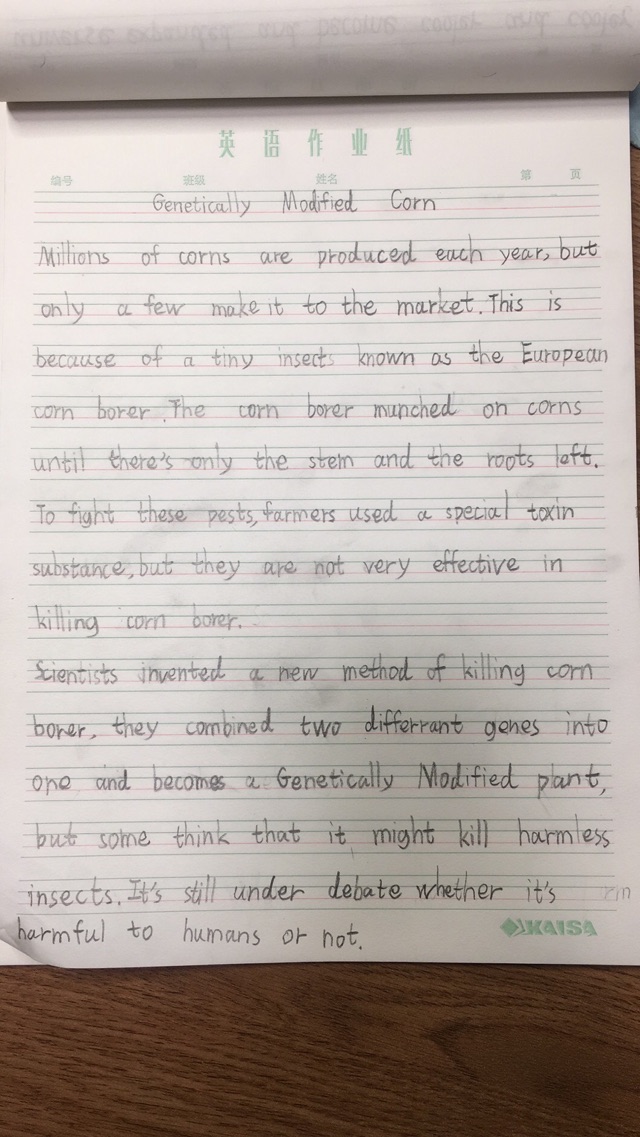 universe expanded and become cooler and cooler
英语作业纸
编号 班级 姓名 第 页
Genetically Modified Corn
Millions of corns are produced each year, but
only a few make it to the market. This is
because of a tiny insects known as the European
corn borer. The corn borer munched on corns
until there's only the stem and the roots left.
To fight these pests, farmers used a special toxin
substance, but they are not very effective in
killing corn borer.
Scientists invented a new method of killing corn
borer, they combined two differrant genes into
one and becomes a Genetically Modified plant,
but some think that it might kill harmless
insects. It's still under debate whether it's
harmful to humans or not.
KAISA